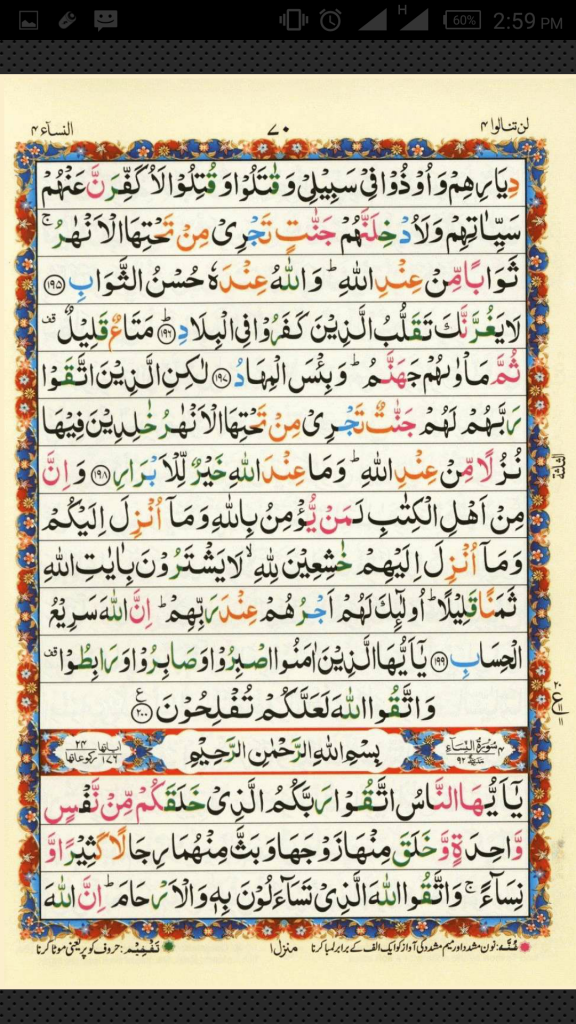 60% 2:59 PM
لن تنالوا ۴ ۷۰ النسآء ۴
دِيَارِهِمْ وَاُوْذُوْا فِيْ سَبِيْلِيْ وَقٰتَلُوْا وَقُتِلُوْا لَاُكَفِّرَنَّ عَنْهُمْ
سَيِّاٰتِهِمْ وَلَاُدْخِلَنَّهُمْ جَنّٰتٍ تَجْرِيْ مِنْ تَحْتِهَا الْاَنْهٰرُ ۚ
ثَوَابًا مِّنْ عِنْدِ اللّٰهِ ؕ وَاللّٰهُ عِنْدَهٗ حُسْنُ الثَّوَابِ ﴿۱۹۵﴾
لَا يَغُرَّنَّكَ تَقَلُّبُ الَّذِيْنَ كَفَرُوْا فِي الْبِلَادِ ﴿۱۹۶﴾ؕ مَتَاعٌ قَلِيْلٌ ۫
ثُمَّ مَاْوٰىهُمْ جَهَنَّمُ ؕ وَبِئْسَ الْمِهَادُ ﴿۱۹۷﴾ لٰكِنِ الَّذِيْنَ اتَّقَوْا
رَبَّهُمْ لَهُمْ جَنّٰتٌ تَجْرِيْ مِنْ تَحْتِهَا الْاَنْهٰرُ خٰلِدِيْنَ فِيْهَا
نُزُلًا مِّنْ عِنْدِ اللّٰهِ ؕ وَمَا عِنْدَ اللّٰهِ خَيْرٌ لِّلْاَبْرَارِ ﴿۱۹۸﴾ وَاِنَّ
مِنْ اَهْلِ الْكِتٰبِ لَمَنْ يُّؤْمِنُ بِاللّٰهِ وَمَآ اُنْزِلَ اِلَيْكُمْ
وَمَآ اُنْزِلَ اِلَيْهِمْ خٰشِعِيْنَ لِلّٰهِ ۙ لَا يَشْتَرُوْنَ بِاٰيٰتِ اللّٰهِ
ثَمَنًا قَلِيْلًا ؕ اُولٰٓئِكَ لَهُمْ اَجْرُهُمْ عِنْدَ رَبِّهِمْ ؕ اِنَّ اللّٰهَ سَرِيْعُ
الْحِسَابِ ﴿۱۹۹﴾ يٰٓاَيُّهَا الَّذِيْنَ اٰمَنُوا اصْبِرُوْا وَصَابِرُوْا وَرَابِطُوْا ۫
وَاتَّقُوا اللّٰهَ لَعَلَّكُمْ تُفْلِحُوْنَ ﴿۲۰۰﴾ ع
۴ سُوْرَةُ النِّسَآءِ مَدَنِيَّةٌ ۹۲ بِسْمِ اللّٰهِ الرَّحْمٰنِ الرَّحِيْمِ اٰيَاتُهَا ۱۷۶ رُكُوْعَاتُهَا ۲۴
يٰٓاَيُّهَا النَّاسُ اتَّقُوْا رَبَّكُمُ الَّذِيْ خَلَقَكُمْ مِّنْ نَّفْسٍ
وَّاحِدَةٍ وَّخَلَقَ مِنْهَا زَوْجَهَا وَبَثَّ مِنْهُمَا رِجَالًا كَثِيْرًا وَّ
نِسَآءً ۚ وَاتَّقُوا اللّٰهَ الَّذِيْ تَسَآءَلُوْنَ بِهٖ وَالْاَرْحَامَ ؕ اِنَّ اللّٰهَ
الثلثة
ع ۲۰ ۱۱
غُنَّه: نون مشدد اور میم مشدد کی آواز کو ایک الف کے برابر لمبا کرنا منزل ۱ تَفْخِيْم: حروف کو پر یعنی موٹا کرنا